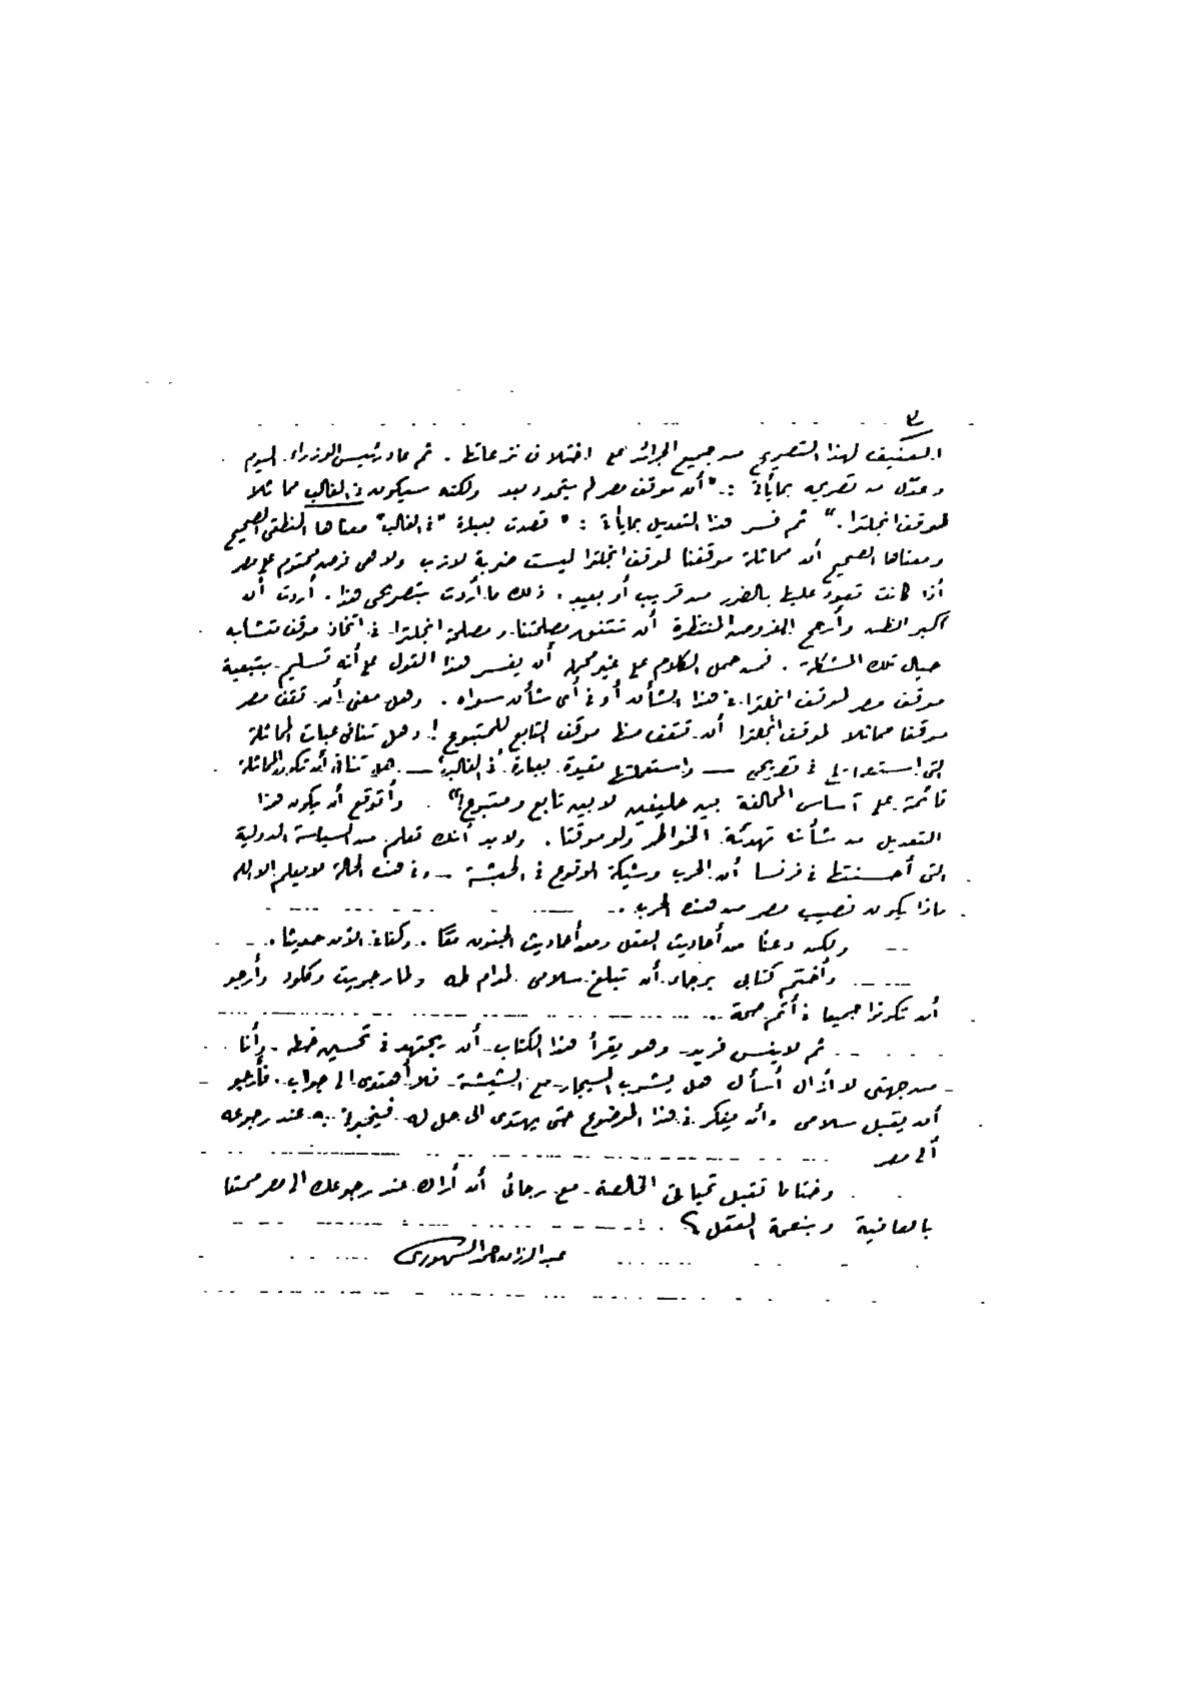 ٣
العنيف لهذا التصريح من جميع الجرائد على اختلاف نزعاتها . ثم عاد رئيس الوزراء اليوم
وعدّل من تصريحه بما يأتى : " أن موقف مصر لم يتحدد بعد ولكنه سيكون فى الغالب مماثلا
لموقف انجلترا . " ثم فسر هذا التعديل بما يأتى : " قصدت بعبارة " فى الغالب " معناها المنطقى الصحيح
ومعناها الصحيح أن مماثلة موقفنا لموقف انجلترا ليست ضربة لازب ولا هى فرض محتوم على مصر
أذا كانت تعود عليها بالضرر من قريب أو بعيد . ذلك ما أردت بتصريحى هذا . أردت أن
أكبر الظن وأرجح الفروض المنتظرة أن تتفق مصلحتنا ومصلحة انجلترا فى اتخاذ موقف متشابه
حيال تلك المشكلة . فمن حمل الكلام على غير محمله أن يفسر هذا القول على أنه تسليم بتبعية
موقف مصر لموقف انجلترا فى هذا الشأن أو فى أى شأن سواه . وهل معنى أن تقف مصر
موقفا مماثلا لموقف انجلترا أن تقف منها موقف التابع للمتبوع ! وهل تنافى عبارات المماثلة
التى استعملتها فى تصريحى — واستعملتها مقيدة بعبارة " فى الغالب " — هل تنافى أن تكون المماثلة
قائمة على أساس المحالفة بين حليفين لا بين تابع ومتبوع ! " . وأتوقع أن يكون هذا
التعديل من شأنه تهدئة الخواطر ولو موقتا . ولابد أنك تعلم من السياسة الدولية
التى أحسنتها فى فرنسا أن الحرب وشيكة الوقوع فى الحبشة – وفى هذه الحالة لا يعلم الا الله
ماذا يكون نصيب مصر من هذه الحرب .
ولكن دعنا من أحاديث العقل ومن أحاديث الجنون معًا . وكفانا الآن حديثا .
وأختتم كتابى برجاء أن تبلغ سلامى لمدام طه ولمارجريت وكلود وأرجو
أن تكونوا جميعا فى أتم صحة .
ثم لاينس فريد وهو يقرأ هذا الكتاب أن يجتهد فى تحسين خطه . وأنا
من جهتى لا أزال أسأل هل يشرب السيجار مع الشيشة فلا أهتدى الى جواب . فأرجو
أن يقبل سلامى وأن يفكر فى هذا الموضوع حتى يهتدى الى حل له فيخبرنى به عند رجوعه
ألى مصر
وختاما تقبل تحياتى الخالصة مع رجائى أن أراك عند رجوعك الى مصر ممتعا
بالعافية وبنعمة العقل ؟
عبد الرزاق احمد السنهورى